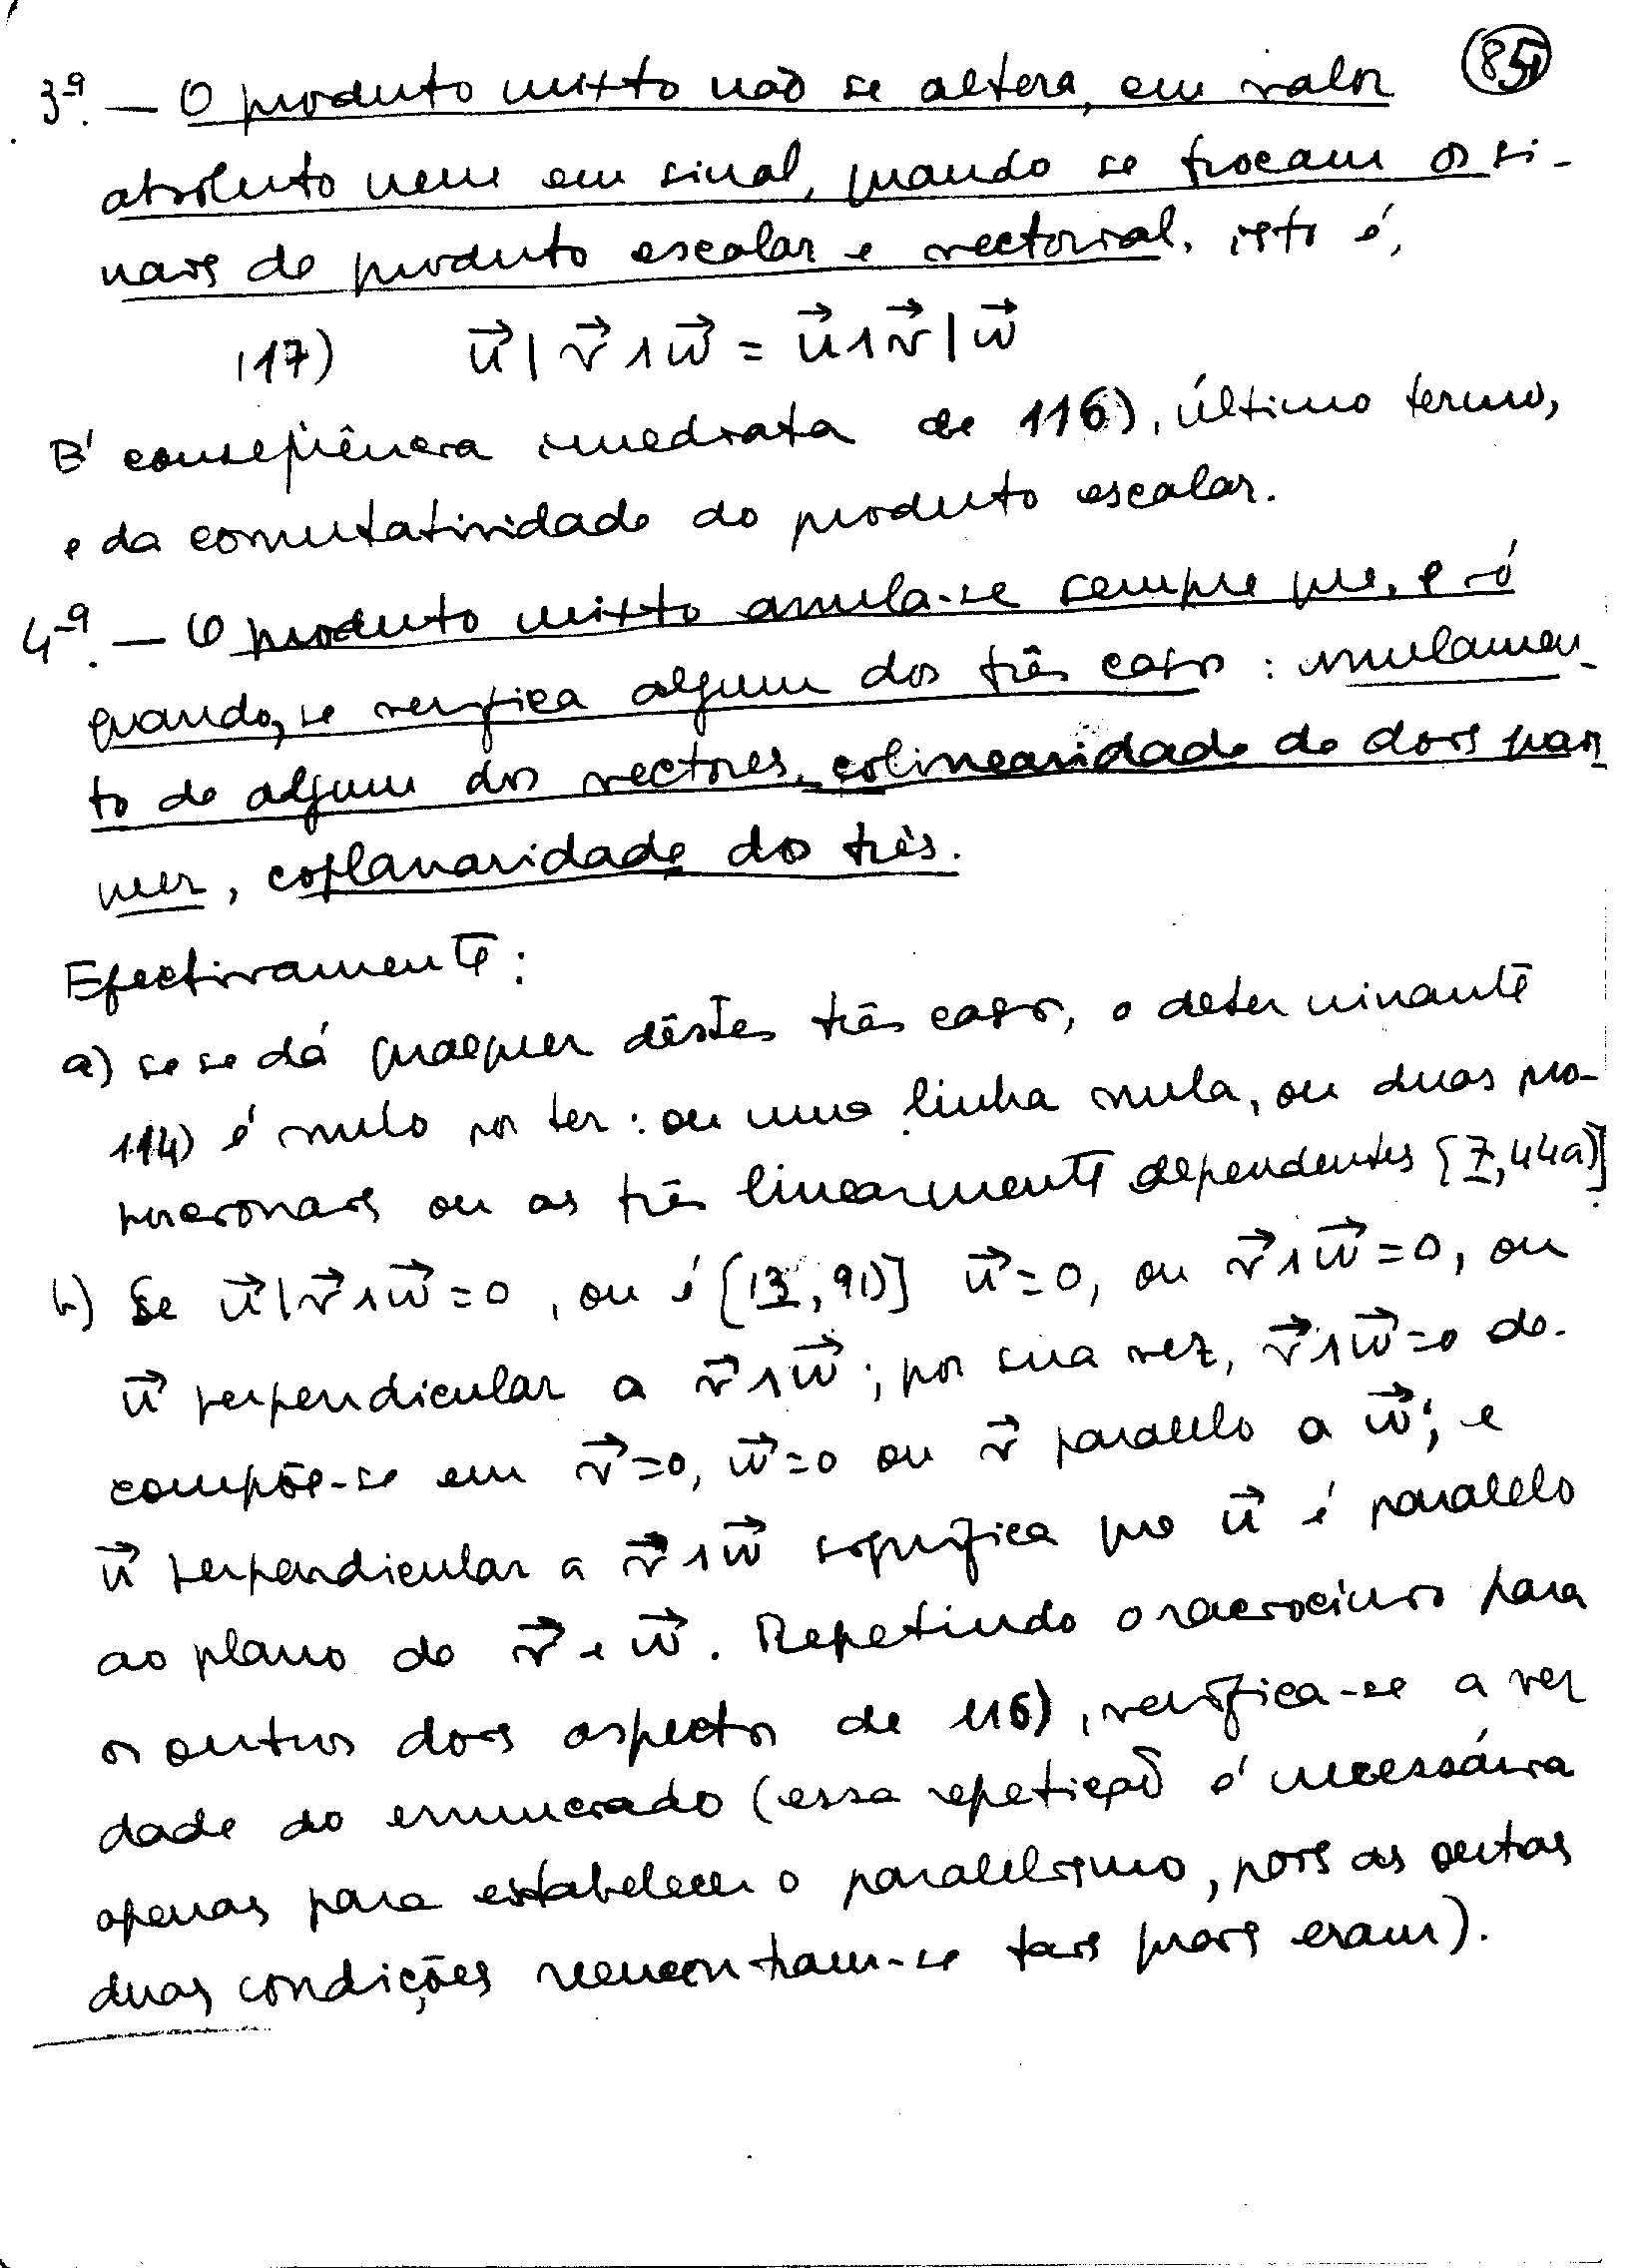 85
3ª. — O produto mixto não se altera, em valor
absoluto nem em sinal, quando se trocam os si-
nais de produto escalar e vectorial, isto é,
117) u⃗ | v⃗ ∧ w⃗ = u⃗ ∧ v⃗ | w⃗
É conseqüência imediata de 116), último termo,
e da comutatividade do produto escalar.
4ª. — O produto mixto anula-se sempre que, e só
quando, se verifica algum dos três casos: anulamen-
to de algum dos vectores, colinearidade de dois quais
quer, coplanaridade dos três.
Efectivamente:
a) se se dá qualquer dêstes três casos, o determinante
114) é nulo por ter: ou uma linha nula, ou duas pro-
porcionais ou as três linearmente dependentes [7, 44a)]
b) Se u⃗ | v⃗ ∧ w⃗ = 0, ou é [13, 91)] u⃗ = 0, ou v⃗ ∧ w⃗ = 0, ou
u⃗ perpendicular a v⃗ ∧ w⃗; por sua vez, v⃗ ∧ w⃗ = 0 de-
compõe-se em v⃗ = 0, w⃗ = 0 ou v⃗ paralelo a w⃗; e
u⃗ perpendicular a v⃗ ∧ w⃗ significa que u⃗ é paralelo
ao plano de v⃗ e w⃗. Repetindo o raciocínio para
os outros dois aspectos de 116), verifica-se a ver
dade do enunciado (essa repetição é necessária
apenas para estabelecer o paralelismo, pois as outras
duas condições reencontram-se tais quais eram).